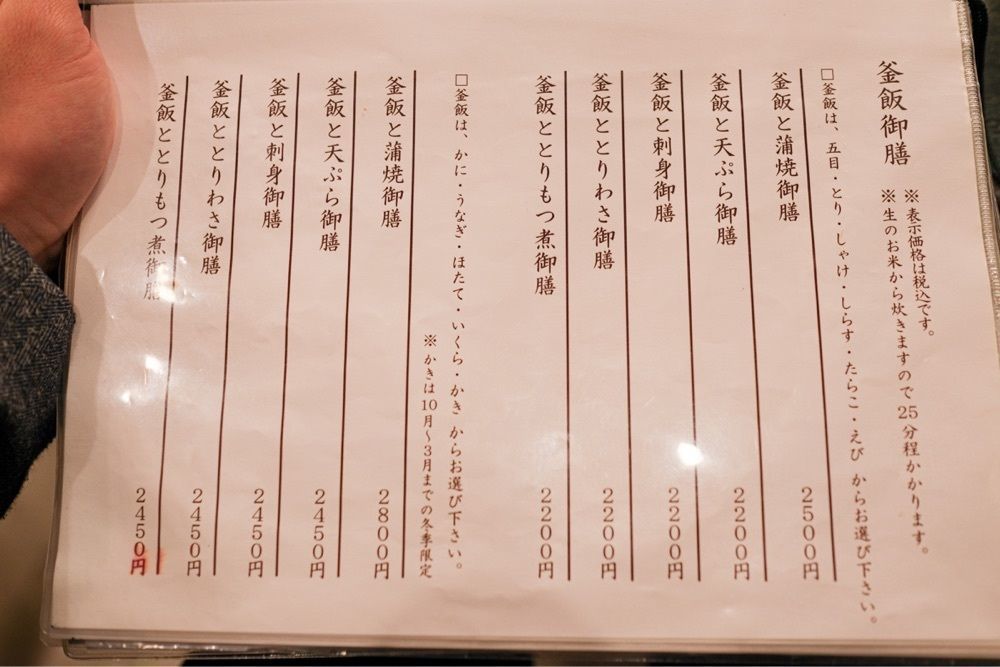 釜飯御膳
※表示価格は税込です。
※生のお米から炊きますので25分程かかります。
□釜飯は、五目・とり・しゃけ・しらす・たらこ・えび からお選び下さい。
釜飯と蒲焼御膳 2500円
釜飯と天ぷら御膳 2200円
釜飯と刺身御膳 2200円
釜飯ととりわさ御膳 2200円
釜飯ととりもつ煮御膳 2200円
□釜飯は、かに・うなぎ・ほたて・いくら・かき からお選び下さい。
※かきは10月～3月までの冬季限定
釜飯と蒲焼御膳 2800円
釜飯と天ぷら御膳 2450円
釜飯と刺身御膳 2450円
釜飯ととりわさ御膳 2450円
釜飯ととりもつ煮御膳 2450円